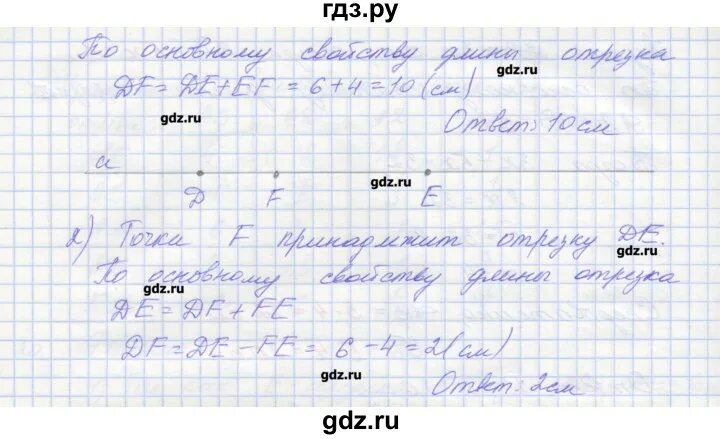 гдз.ру
По основному свойству длины отрезка
gdz.ru
DF = DE + EF = 6 + 4 = 10 (см)
gdz.ru
Ответ: 10 см
a
gdz.ru
D F E
2) Точка F принадлежит отрезку DE.
gdz.ru
По основному свойству длины отрезка
gdz.ru
gdz.ru
DE = DF + FE
DF = DE - FE = 6 - 4 = 2 (см)
gdz.ru
Ответ: 2 см
gdz.ru